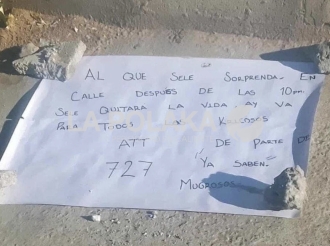 AL QUE SELE SORPRENDA. EN
CALLE DESPUBS DE LAS 10pm.
SELE QUITARA LA VIDA. AY VA
PARA TODOS LOS
ATT DE PARTE DE
727 "YA SABEN"
MUGROSOS